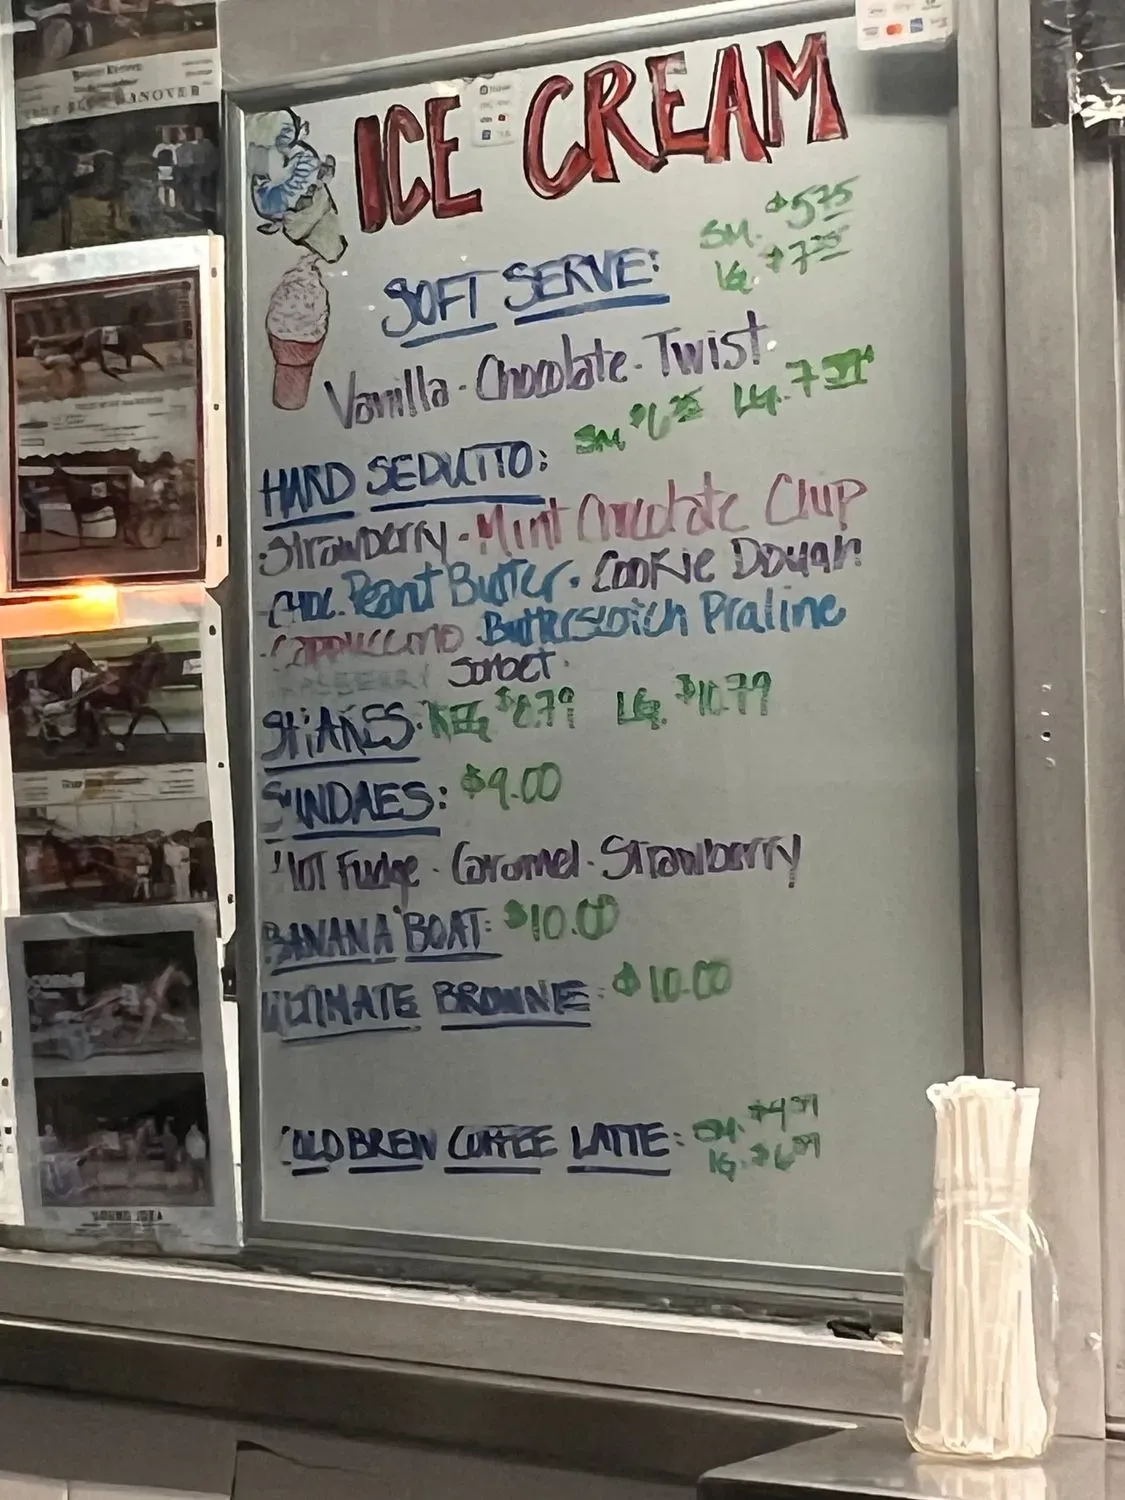 ICE CREAM
SOFT SERVE: SM. $5.75
LG. $7.25
Vanilla - Chocolate - Twist
HARD SEDUTTO: SM $6.25 LG. 7.
Strawberry - Mint Chocolate Chip
CHOC. Peanut Butter - Cookie Dough
CAPPUCCINO - Butterscotch Praline
RASBERRY Sorbet
SHAKES: REG $8.79 LG. $10.79
SUNDAES: $9.00
HOT Fudge - Caramel - Strawberry
BANANA BOAT: $10.00
ULTIMATE BROWNIE: $10.00
COLD BREW COFFEE LATTE: SM. $4.99
LG. $6.09
HANOVER